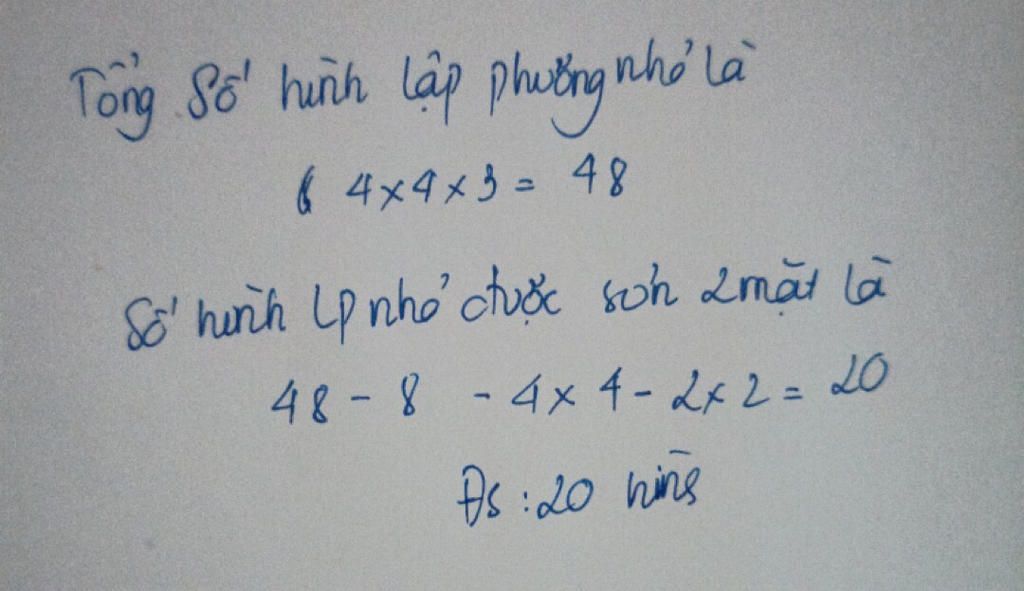 Tổng số hình lập phương nhỏ là
4x4x3 = 48
Số hình LP nhỏ được sơn 2 mặt là
48 - 8 - 4x4 - 2x2 = 20
Đs : 20 hình